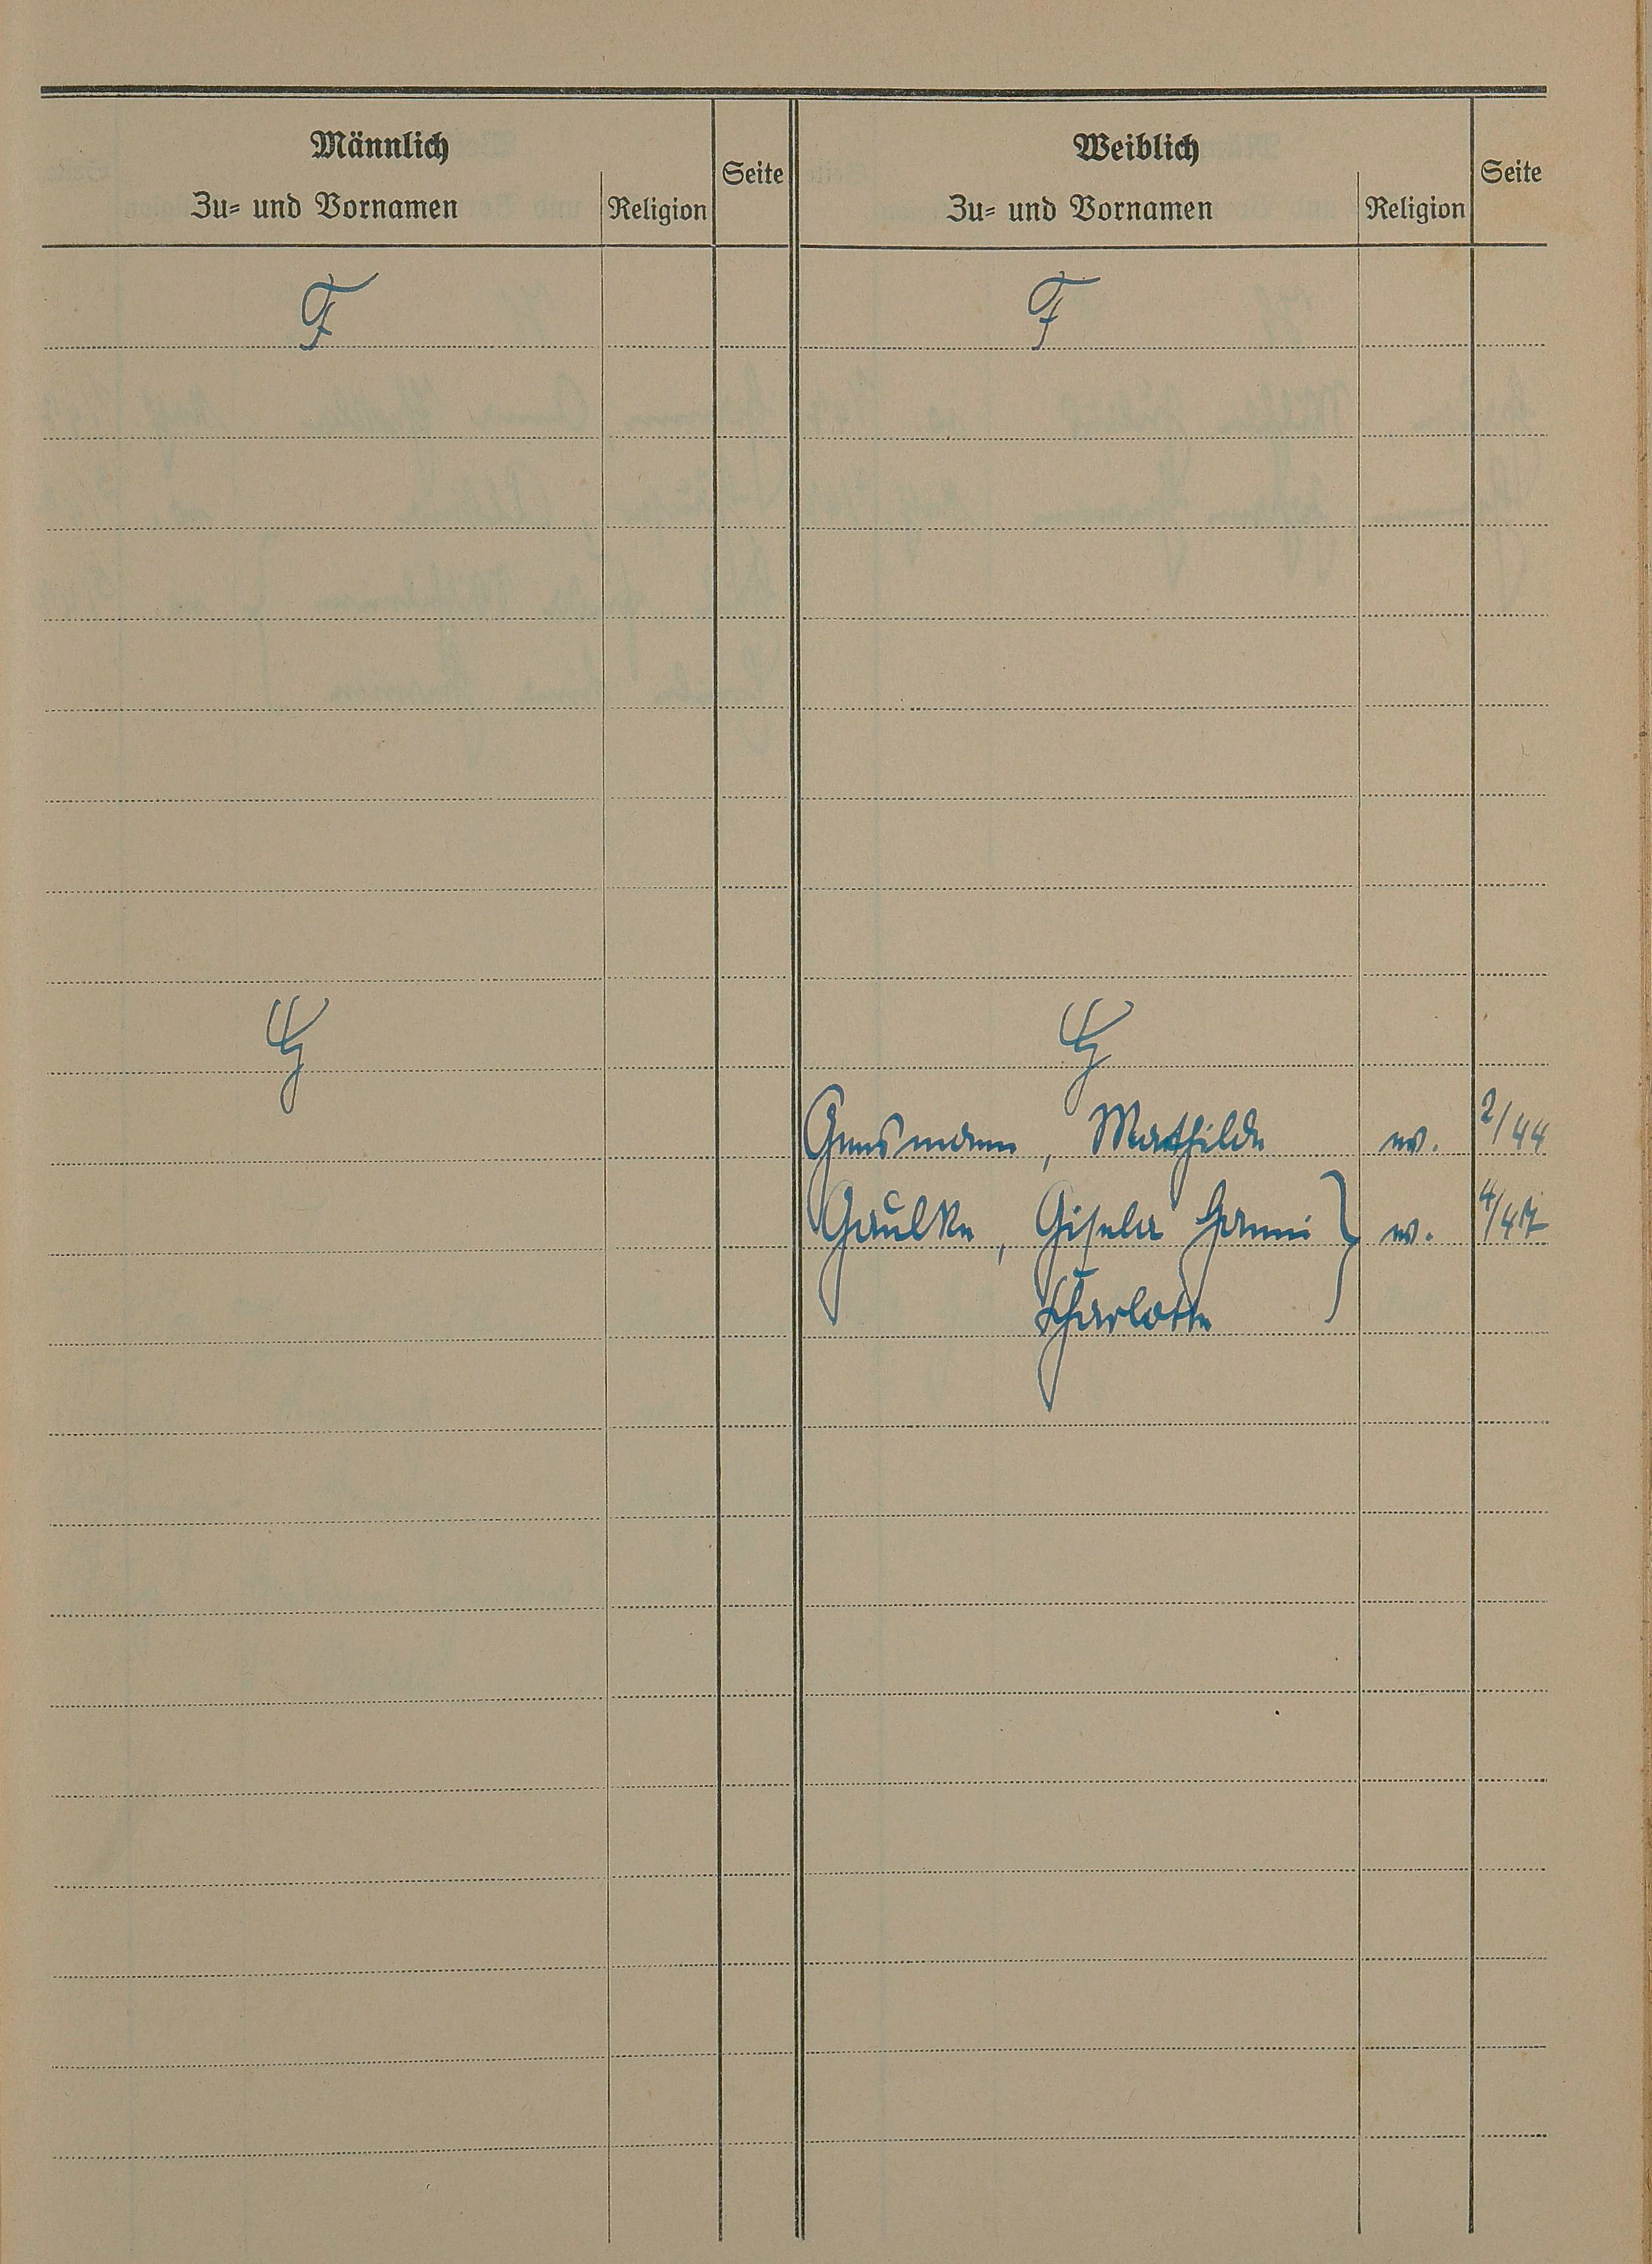 Männlich
Zu- und Vornamen Religion Seite
Weiblich
Zu- und Vornamen Religion Seite
F F
G G
Mathilde ev. 2/44
Gaulke, Gisela Hanni } ev. 4/47
Charlotte